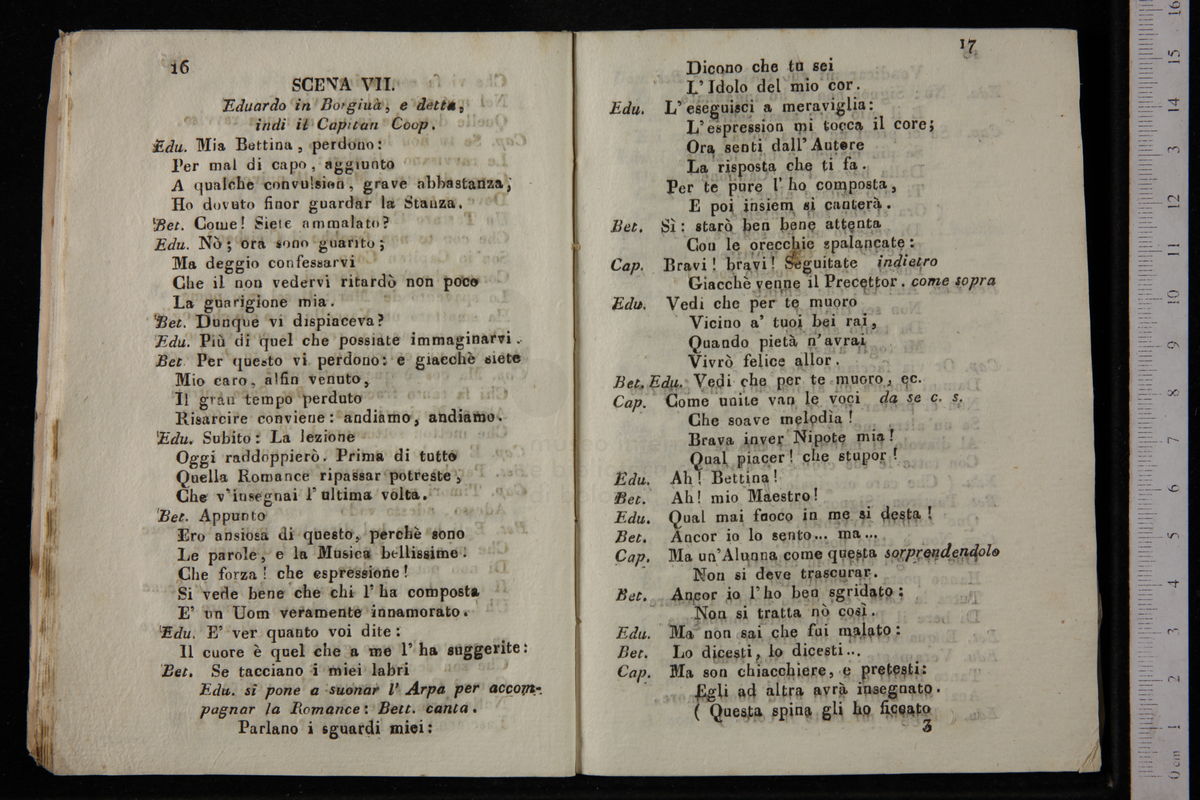 16
SCENA VII.
Eduardo in Borgiuà, e detta,
indi il Capitan Coop.
Edu. Mia Bettina, perdono:
Per mal di capo, aggiunto
A qualche convulsion, grave abbastanza,
Ho dovuto finor guardar la Stanza.
Bet. Come! Siete ammalato?
Edu. Nò; ora sono guarito;
Ma deggio confessarvi
Che il non vedervi ritardò non poco
La guarigione mia.
Bet. Dunque vi dispiaceva?
Edu. Più di quel che possiate immaginarvi.
Bet Per questo vi perdono: e giacchè siete
Mio caro, alfin venuto,
Il gran tempo perduto
Risarcire conviene: andiamo, andiamo.
Edu. Subito: La lezione
Oggi raddoppierò. Prima di tutto
Quella Romance ripassar potreste,
Che v'insegnai l'ultima volta.
Bet. Appunto
Ero ansiosa di questo, perchè sono
Le parole, e la Musica bellissime.
Che forza! che espressione!
Si vede bene che chi l'ha composta
E' un Uom veramente innamorato.
Edu. E' ver quanto voi dite:
Il cuore è quel che a me l'ha suggerite:
Bet. Se tacciano i miei labri
Edu. si pone a suonar l'Arpa per accom-
pagnar la Romance: Bett. canta.
Parlano i sguardi miei:
17
Dicono che tu sei
L'Idolo del mio cor.
Edu. L'eseguisci a meraviglia:
L'espression mi tocca il core;
Ora senti dall'Autore
La risposta che ti fa.
Per te pure l'ho composta,
E poi insiem si canterà.
Bet. Sì: starò ben bene attenta
Con le orecchie spalancate:
Cap. Bravi! bravi! Seguitate indietro
Giacchè venne il Precettor. come sopra
Edu. Vedi che per te muoro
Vicino a' tuoi bei rai,
Quando pietà n'avrai
Vivrò felice allor.
Bet. Edu. Vedi che per te muoro, ec.
Cap. Come unite van le voci da se c. s.
Che soave melodìa!
Brava inver Nipote mia!
Qual piacer! che stupor!
Edu. Ah! Bettina!
Bet. Ah! mio Maestro!
Edu. Qual mai fuoco in me si desta!
Bet. Ancor io lo sento... ma...
Cap. Ma un'Alunna come questa sorprendendolo
Non si deve trascurar.
Bet. Ancor io l'ho ben sgridato:
Non si tratta nò così.
Edu. Ma non sai che fui malato:
Bet. Lo dicesti, lo dicesti...
Cap. Ma son chiacchiere, e pretesti:
Egli ad altra avrà insegnato.
( Questa spina gli ho ficcato
3